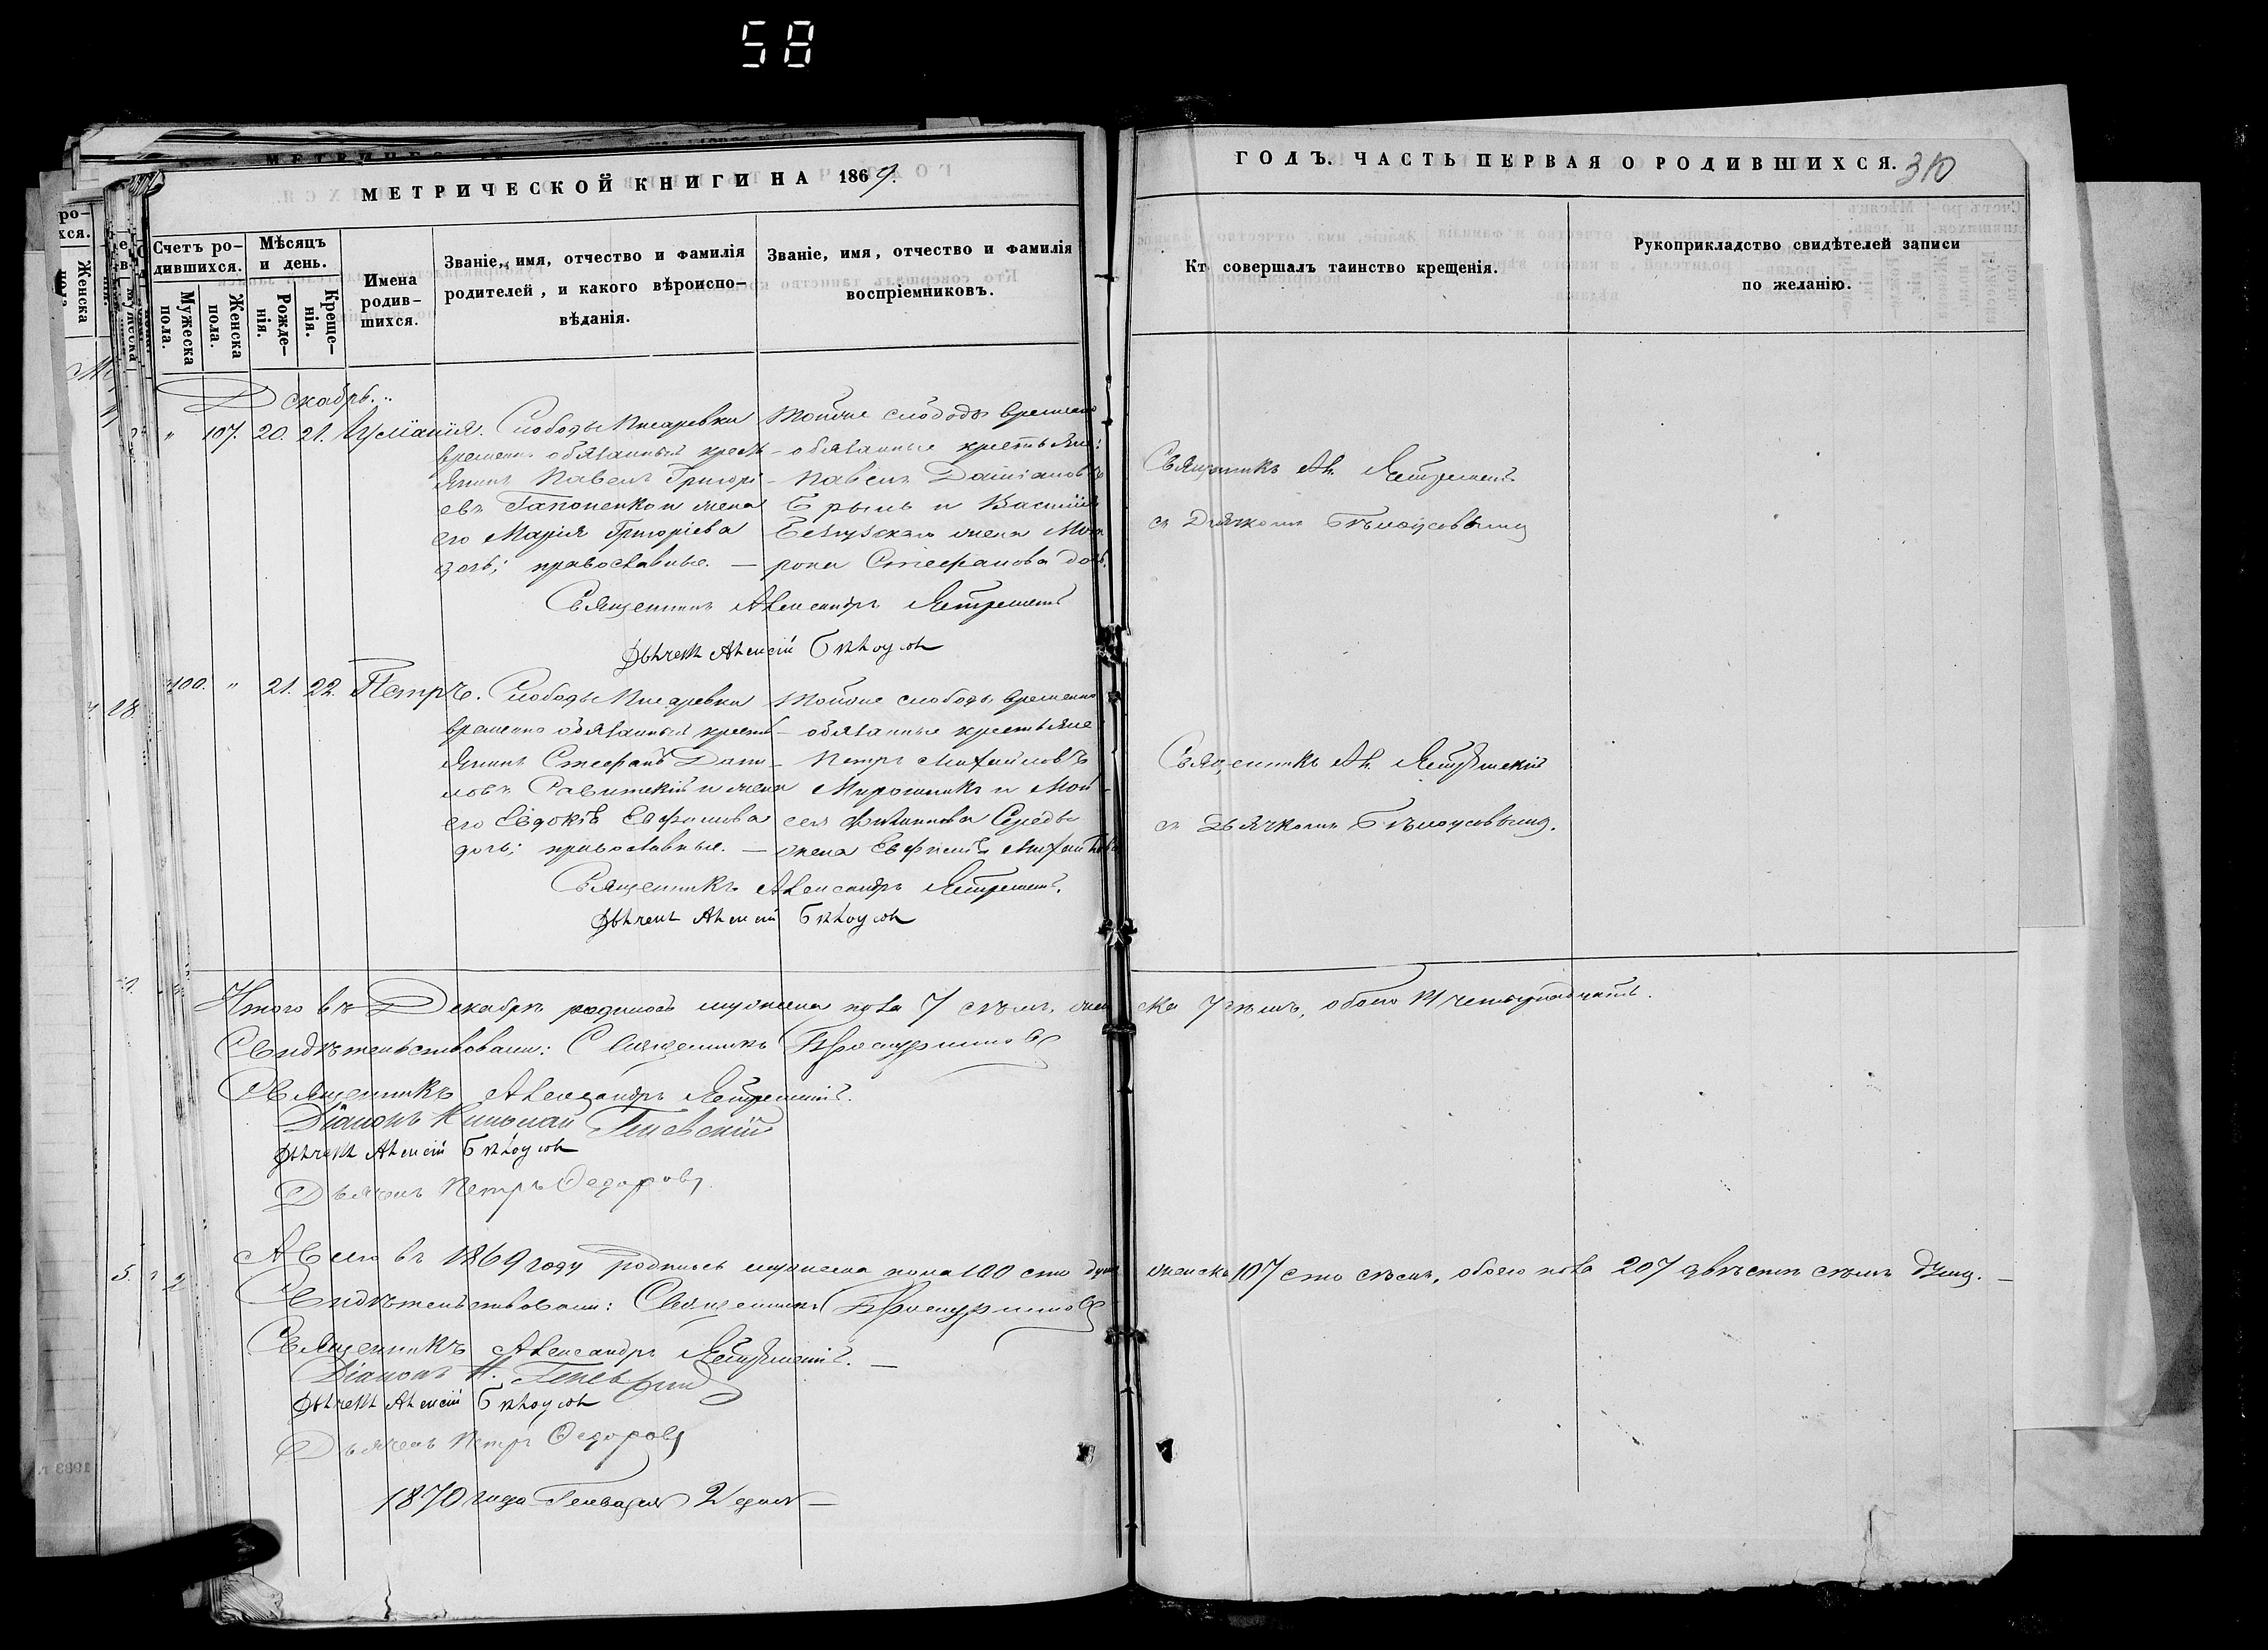 58
МЕТРИЧЕСКОЙ КНИГИ НА 1869.
ГОДЪ. ЧАСТЬ ПЕРВАЯ О РОДИВШИХСЯ. 310
Счетъ ро-
дившихся.
Мужеска
пола.
Женска
пола.
Мѣсяцъ
и день.
Рожде-
нія.
Креще-
нія.
Имена
родив-
шихся.
Званіе, имя, отчество и фамилія
родителей, и какого вѣроиспо-
вѣданія.
Званіе, имя, отчество и фамилія
воспріемниковъ.
Кт совершалъ таинство крещенія.
Рукоприкладство свидѣтелей записи
по желанію.
Декабрь.
" 107. 20. 21. Іуліанія.
Слободы Писаревки
временно обязанный крест-
янинъ Павелъ Григорі-
евъ Гапоненко и жена
его Марія Григоріева
дочь; православные. —
Тойже слободы временно
обязанные крестьяне:
Павелъ Даміановъ
и Василія
жена Мат-
рона Стефанова дочь.
Священникъ Александръ
Дьячекъ Алексій Бѣлоусовъ
Священникъ Ал.
съ Дьячкомъ Бѣлоусовымъ
100. " 21. 22. Петръ.
Слободы Писаревки
временно обязанный крест-
янинъ Стефанъ Дани-
ловъ и жена
его Евдокія Ефимова
дочь; православные. —
Тойже слободы временно
обязанные крестьяне
Петръ Михайловъ
Мирошникъ и Мой-
сея Середы
жена Евфимія Михайлова
Священникъ Александръ
Дьячекъ Алексій Бѣлоусовъ
Священникъ Ал.
съ Дьячкомъ Бѣлоусовымъ.
Итого въ Декабрѣ родилось мужеска пола 7 семь, женска 7 семь, обоего 14 четырнадцать.
Свидѣтельствовали: Священникъ
Священникъ Александръ
Діаконъ Николай
Дьячекъ Алексій Бѣлоусовъ
Дьячекъ Петръ Федоровъ
А всего въ 1869 году родилось мужеска пола 100 сто душъ женска 107 сто семь, обоего пола 207 двѣсти семь душъ. —
Свидѣтельствовали: Священникъ
Священникъ Александръ
Діаконъ Н.
Дьячекъ Алексій Бѣлоусовъ
Дьячекъ Петръ Федоровъ
1870 года Генваря 2 дня —